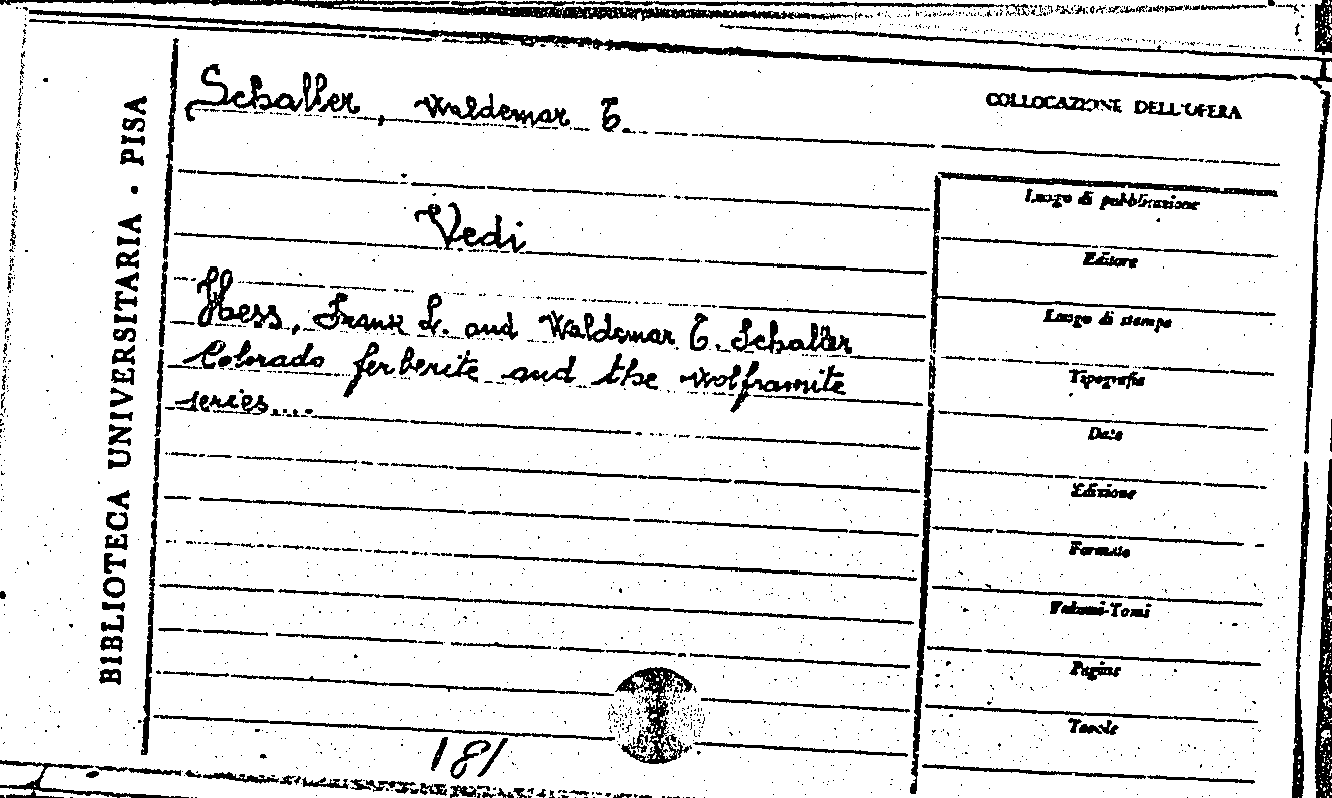 Schaller, Waldemar T.
COLLOCAZIONE DELL'OPERA
BIBLIOTECA UNIVERSITARIA · PISA
Vedi
Hess, Frank L. and Waldemar T. Schaller
Colorado ferberite and the wolframite
series....
Luogo di pubblicazione
Editore
Luogo di stampa
Tipografia
Data
Edizione
Formato
Volumi-Tomi
Pagine
Tavole
181